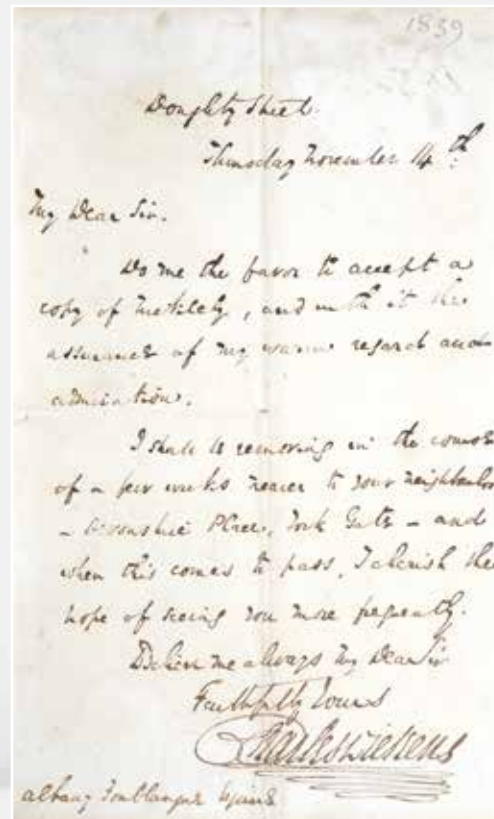 1839
Doughty Street.
Thursday November 14th.
My Dear Sir.
Do me the favor to accept a
copy of Nickleby, and with it the
assurance of my warm regard and
admiration.
I shall be removing in the course
of a few weeks nearer to your neighbourhood
- Devonshire Place, York Gate - and
when this comes to pass, I cherish the
hope of seeing you more frequently.
Believe me always My Dear Sir
Faithfully Yours
Charles Dickens
Albany Fonblanque Esquire